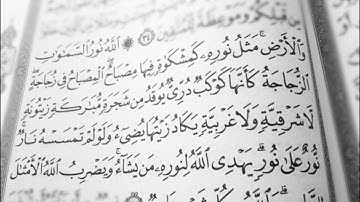 وَمَوْعِظَةً لِّلْمُتَّقِينَ ﴿٣٤﴾ ۞ ٱللَّهُ نُورُ ٱلسَّمَٰوَٰتِ
وَٱلْأَرْضِ ۚ مَثَلُ نُورِهِۦ كَمِشْكَوٰةٍ فِيهَا مِصْبَاحٌ ۖ ٱلْمِصْبَاحُ فِى زُجَاجَةٍ ۖ
ٱلزُّجَاجَةُ كَأَنَّهَا كَوْكَبٌ دُرِّىٌّ يُوقَدُ مِن شَجَرَةٍ مُّبَٰرَكَةٍ زَيْتُونَةٍ
لَّا شَرْقِيَّةٍ وَلَا غَرْبِيَّةٍ يَكَادُ زَيْتُهَا يُضِىٓءُ وَلَوْ لَمْ تَمْسَسْهُ نَارٌ ۚ
نُّورٌ عَلَىٰ نُورٍ ۗ يَهْدِى ٱللَّهُ لِنُورِهِۦ مَن يَشَآءُ ۚ وَيَضْرِبُ ٱللَّهُ ٱلْأَمْثَٰلَ